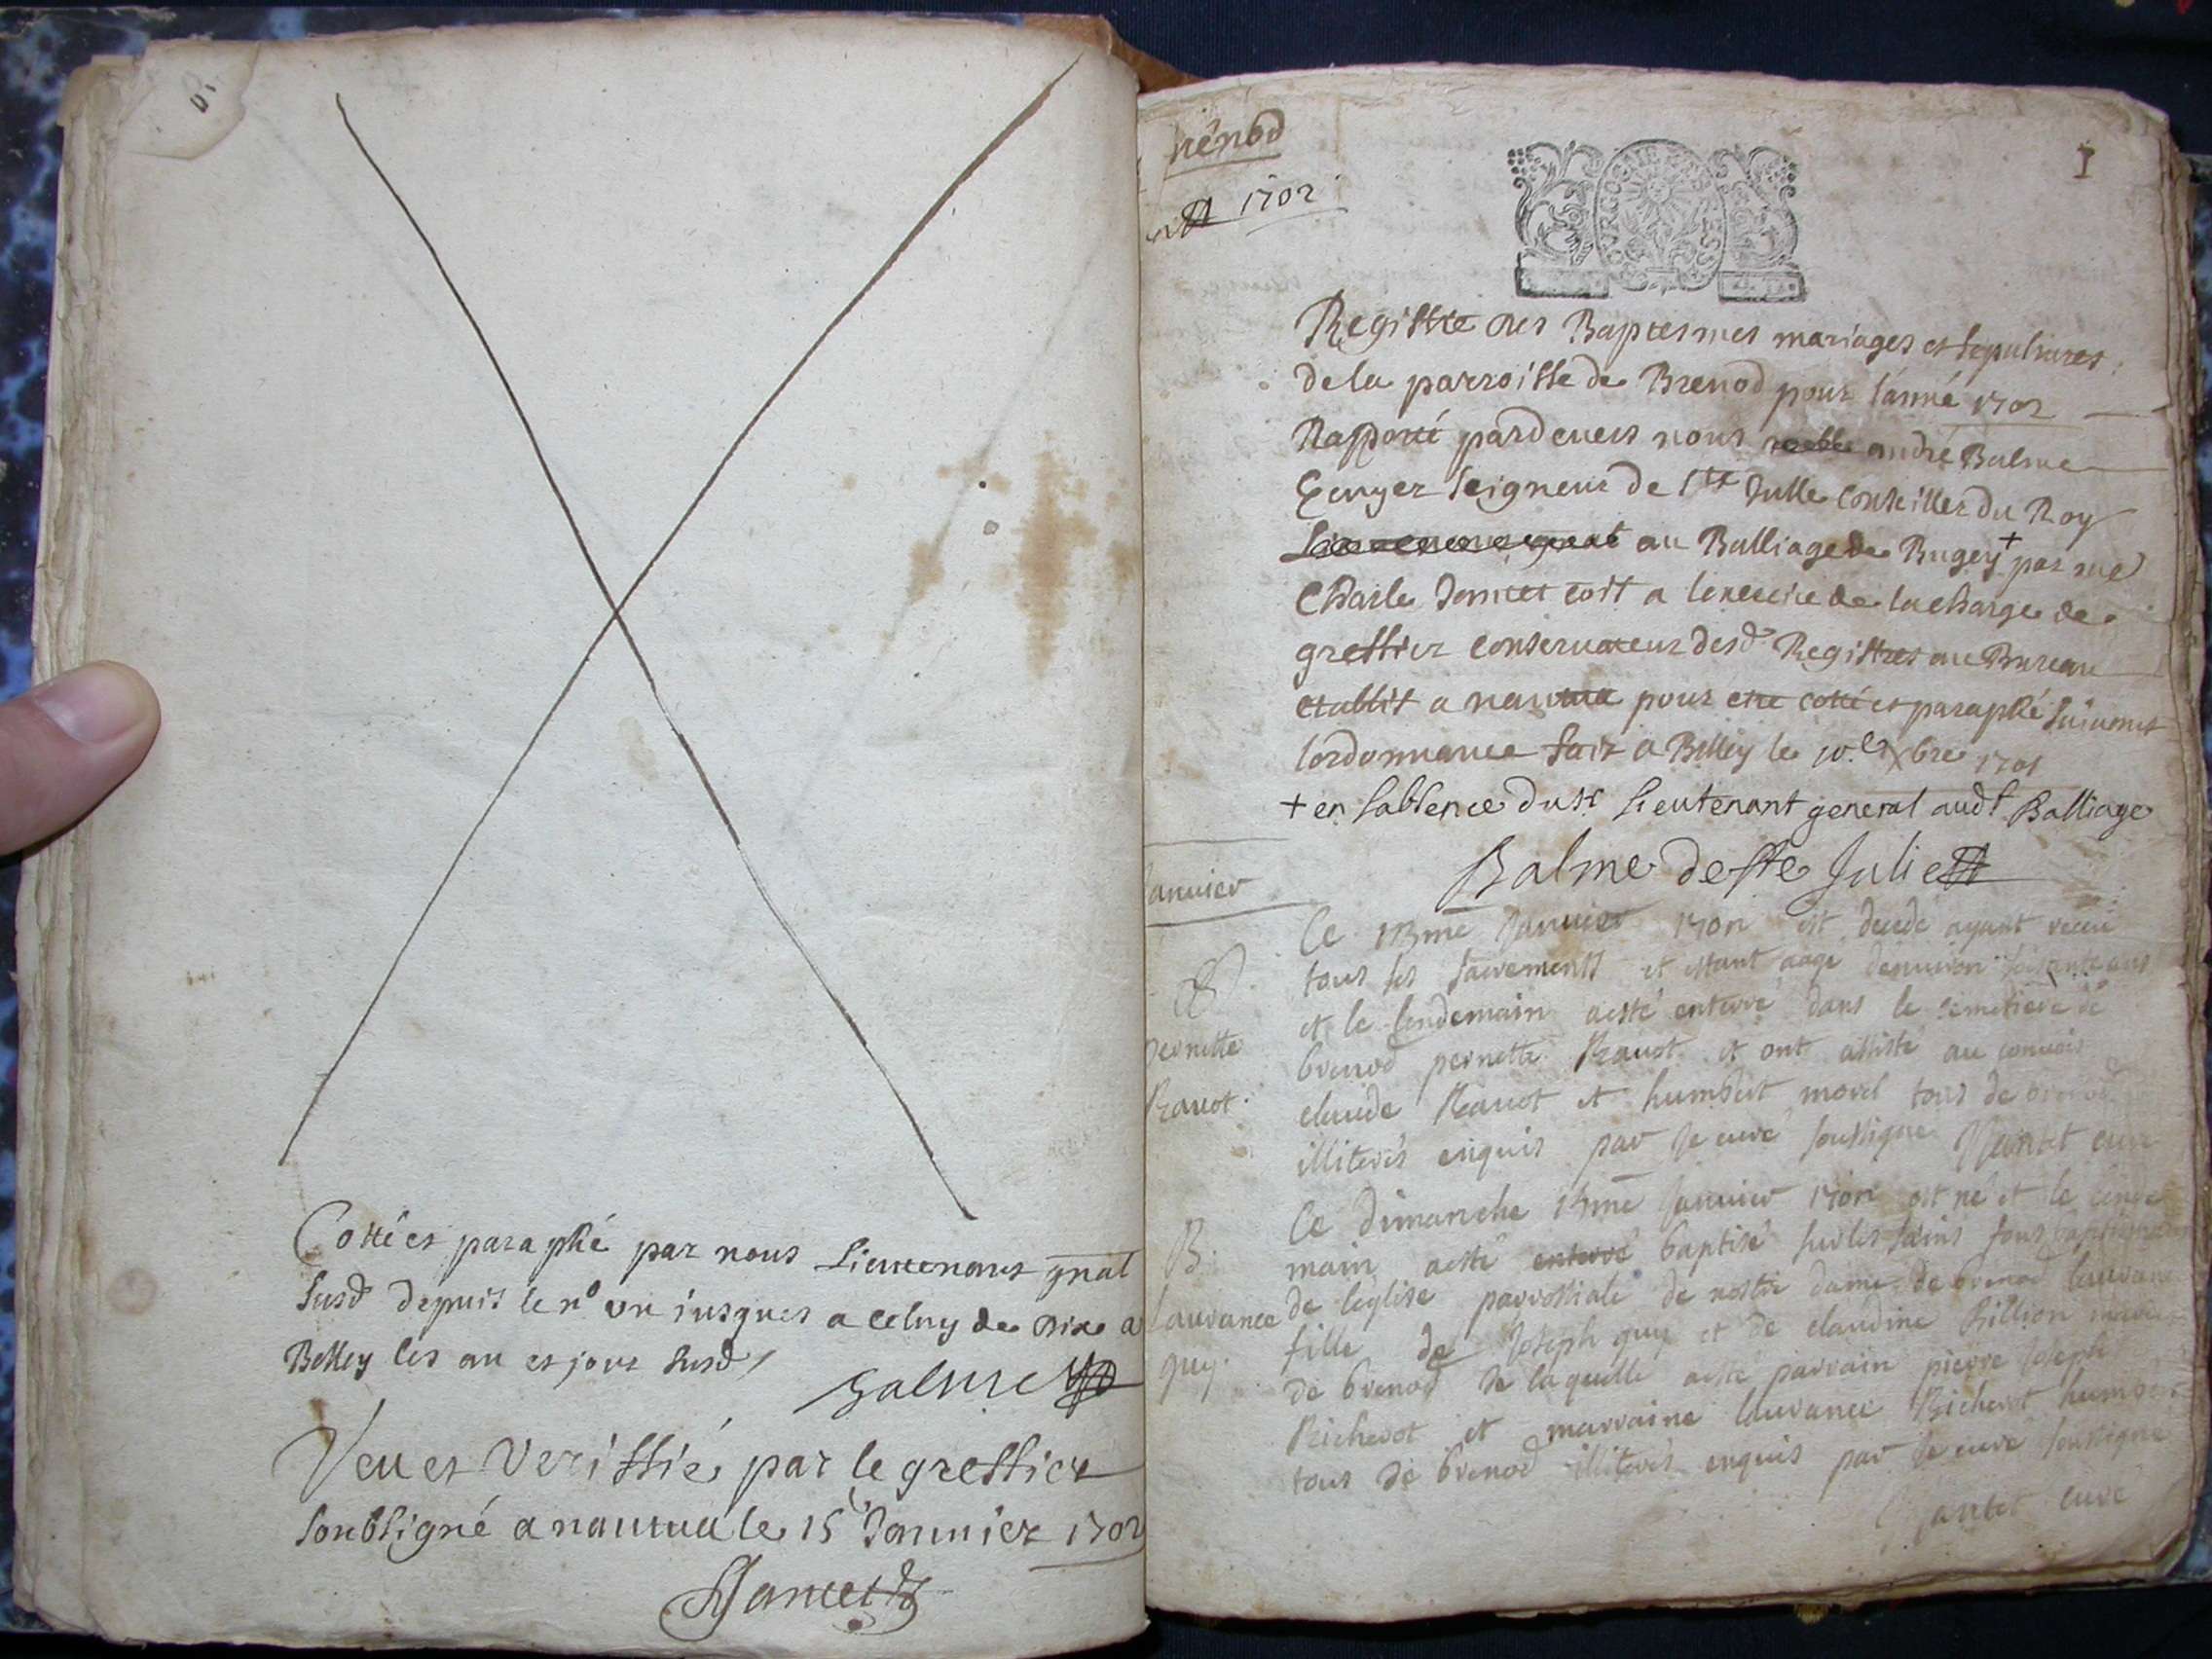 Cotté et paraphé par nous Lieutenant gnal
susd depuis le n° un jusques a celuy de dixe a
Belley les an et jour susd /
Balme
Veu et veriffié par le greffier
soubsigné a nantua le 15e Januier 1702
Jantet
I
renod
1702
BOURGOGNE
Registre des Baptesmes mariages et sepultures
de la parroisse de Brenod pour l'anné 1702
Rapporté pardeuers nous noble andré Balme
Ecuyer seigneur de Ste Julle Conseiller du Roy
Lieutenant gnal au Balliage de Bugey + par me
Charle Jantet coït a lexercice de la charge de
greffier conseruateur desd Registres au Bureau
etablit a nantua pour etre cotté et paraphé suiuant
lordonnance fait a Belley le 10e Xbre 1701
+ en l'absence du sr lieutenant general audt Balliage
Balme de Ste Julie
januier
Ce 13me januier 1702 est decedé ayant receu
tous les sacrements et estant aagé denuiron soixante ans
et le lendemain a esté enterré dans le cemetiere de
brenod pernette Rauot et ont assisté au conuois
claude Rauot et humbert morel tous de brenod
illiterés enquis par je curé soussigné Jantet curé
pernette
Rauot
Ce dimanche 15me januier 1702 est né et le lende
main a esté enterré baptisé sur les sains fons baptismaux
de leglise parrossiale de nostre dame de brenod laurance
fille de joseph guy et de claudine Billion mariés
de brenod de laquelle a esté parrain pierre joseph
Richerot et marraine laurance Richerot humbert
tous de brenod illiterés enquis par je curé soussigné
Jantet curé
B.
laurance
guy.